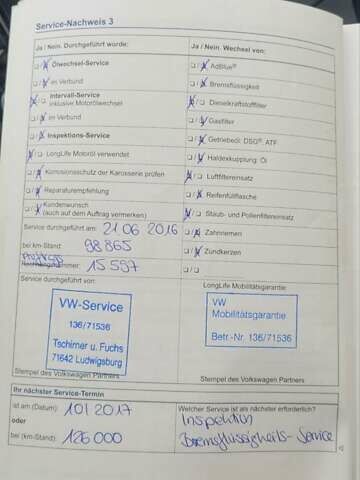 Service-Nachweis 3
Ja / Nein. Durchgeführt wurde:
Ölwechsel-Service
im Verbund
Intervall-Service
inklusive Motorölwechsel
im Verbund
Inspektions-Service
LongLife Motoröl verwendet
Korrosionsschutz der Karosserie prüfen
Reparaturempfehlung
Kundenwunsch
(auch auf dem Auftrag vermerken)
Service durchgeführt am: 21 06 2016
bei km-Stand: 98 865
15 597
Service durchgeführt von:
VW-Service
136/71536
Tschirner u. Fuchs
71642 Ludwigsburg
Stempel des Volkswagen Partners
Ja / Nein. Wechsel von:
AdBlue®
Bremsflüssigkeit
Dieselkraftstofffilter
Gasfilter
Getriebeöl: DSG®, ATF
Haldexkupplung: Öl
Luftfiltereinsatz
Reifenfüllflasche
Staub- und Pollenfiltereinsatz
Zahnriemen
Zündkerzen
LongLife Mobilitätsgarantie
VW
Mobilitätsgarantie
Betr.-Nr. 136/71536
Stempel des Volkswagen Partners
Ihr nächster Service-Termin
ist am (Datum): 10/2017
oder
bei (km-Stand): 126 000
Welcher Service ist als nächster erforderlich?
Inspektion
Bremsflüssigkeits-Service